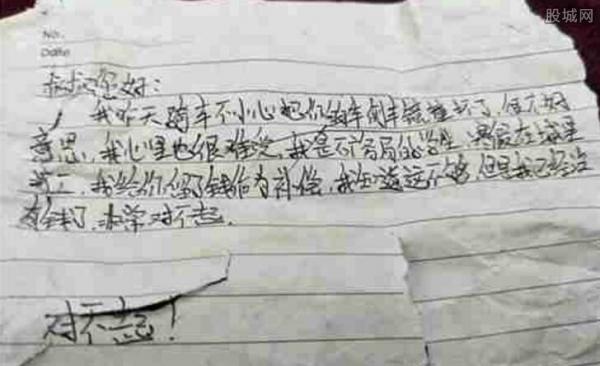 股城网
No.
Date
叔叔您好:
我昨天骑车不小心把你的车倒车镜撞坏了,很不好
意思,我心里也很难受,我是的学生,寒假在城里
打工,我给你留了钱作为补偿,我知道远不够,但是我已经没
有钱了,非常对不起.
对不起!